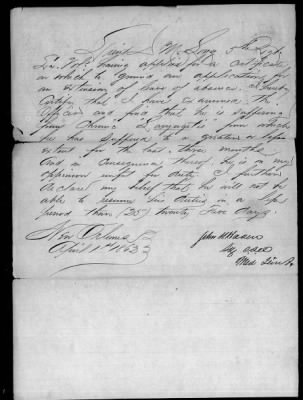 Lieut J. M. Long 5th Regt
La. Vols. having applied for a certificate
on which to ground an application for
an extension of leave of absence. I hereby
Certify that I have examined the
Officer and find that he is suffering
from Chronic from which
he has suffered to a greater or less
extent for the last three months
And in consequence thereof he is in my
opinion unfit for duty. I further
declare my belief that he will not be
able to resume his duties in a less
period than (25) twenty five days
New Orleans La
April 1st 1862
John
Med